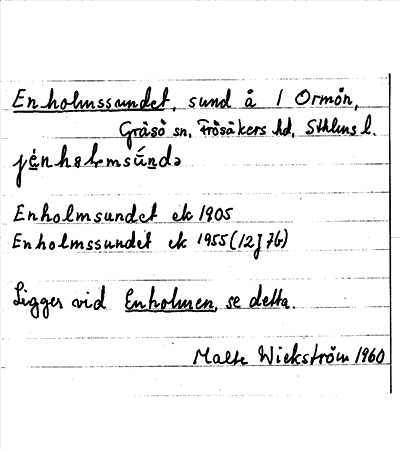 Enholmssundet, sund å 1 Ormön,
Gräsö sn, Frösåkers hd, Sthlms l.
jénhɵlmsúndə
Enholmsundet ek 1905
Enholmssundet ek 1955 (12J 7b)
Ligger vid Enholmen, se detta.
Malte Wickström 1960